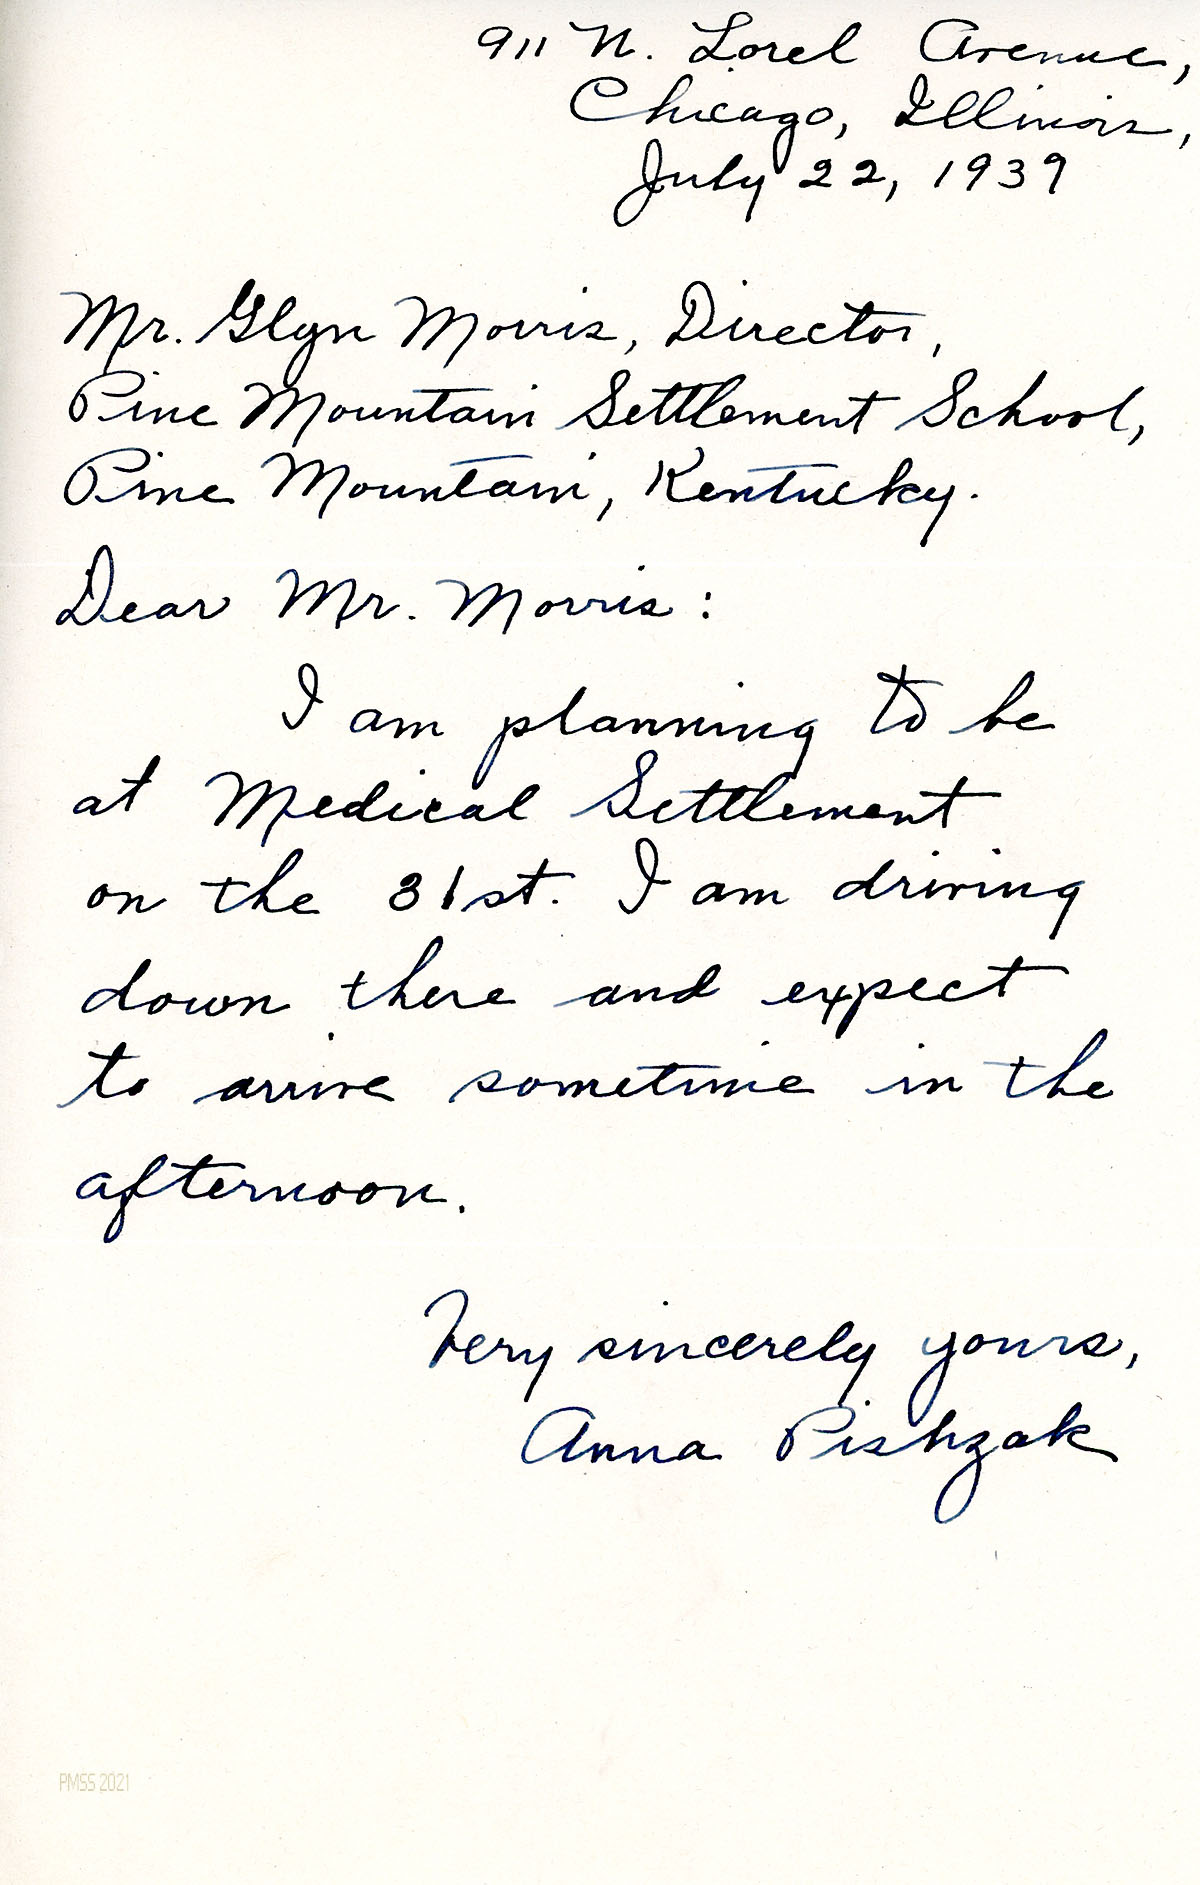 911 N. Lorel Avenue,
Chicago, Illinois,
July 22, 1939
Mr. Glyn Morris, Director,
Pine Mountain Settlement School,
Pine Mountain, Kentucky.
Dear Mr. Morris:
I am planning to be
at Medical Settlement
on the 31st. I am driving
down there and expect
to arrive sometime in the
afternoon.
Very sincerely yours,
Anna Pishzak
PMSS 2021